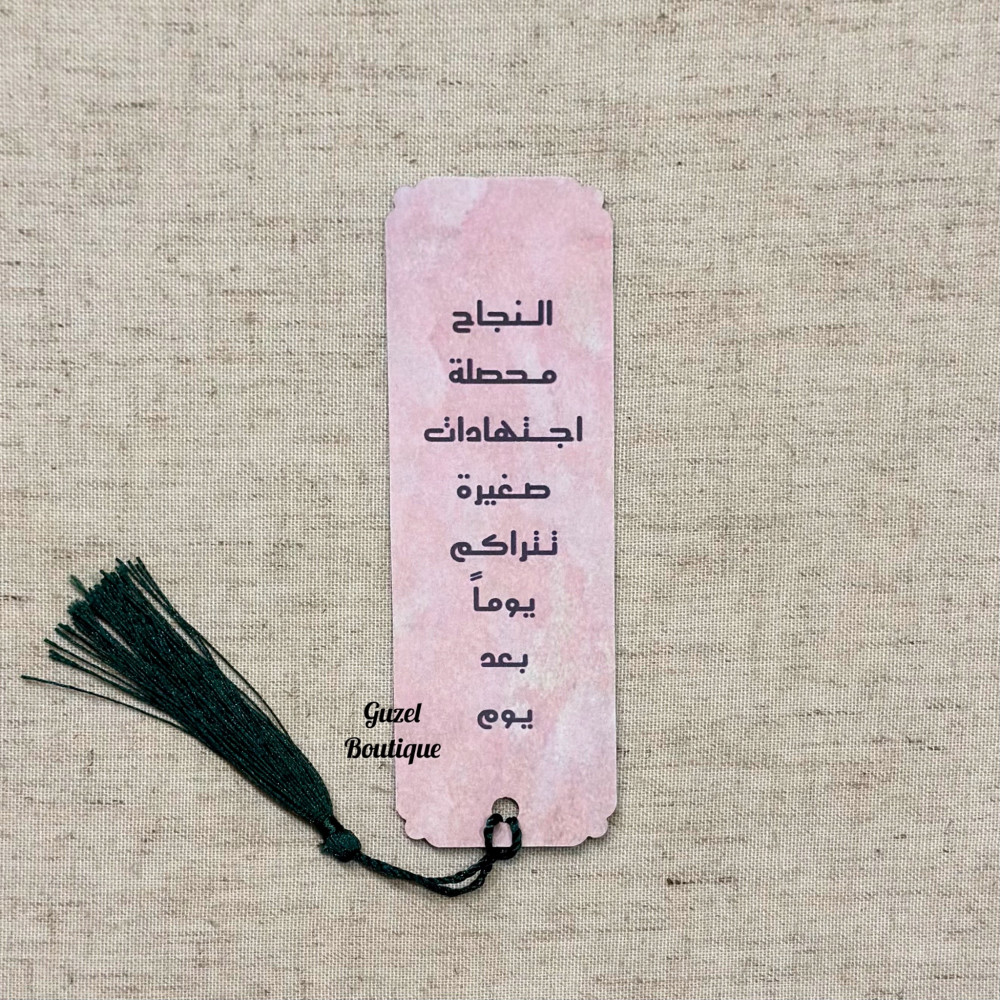 النجاح
محصلة
اجتهادات
صغيرة
تتراكم
يوماً
بعد
يوم
Guzel
Boutique